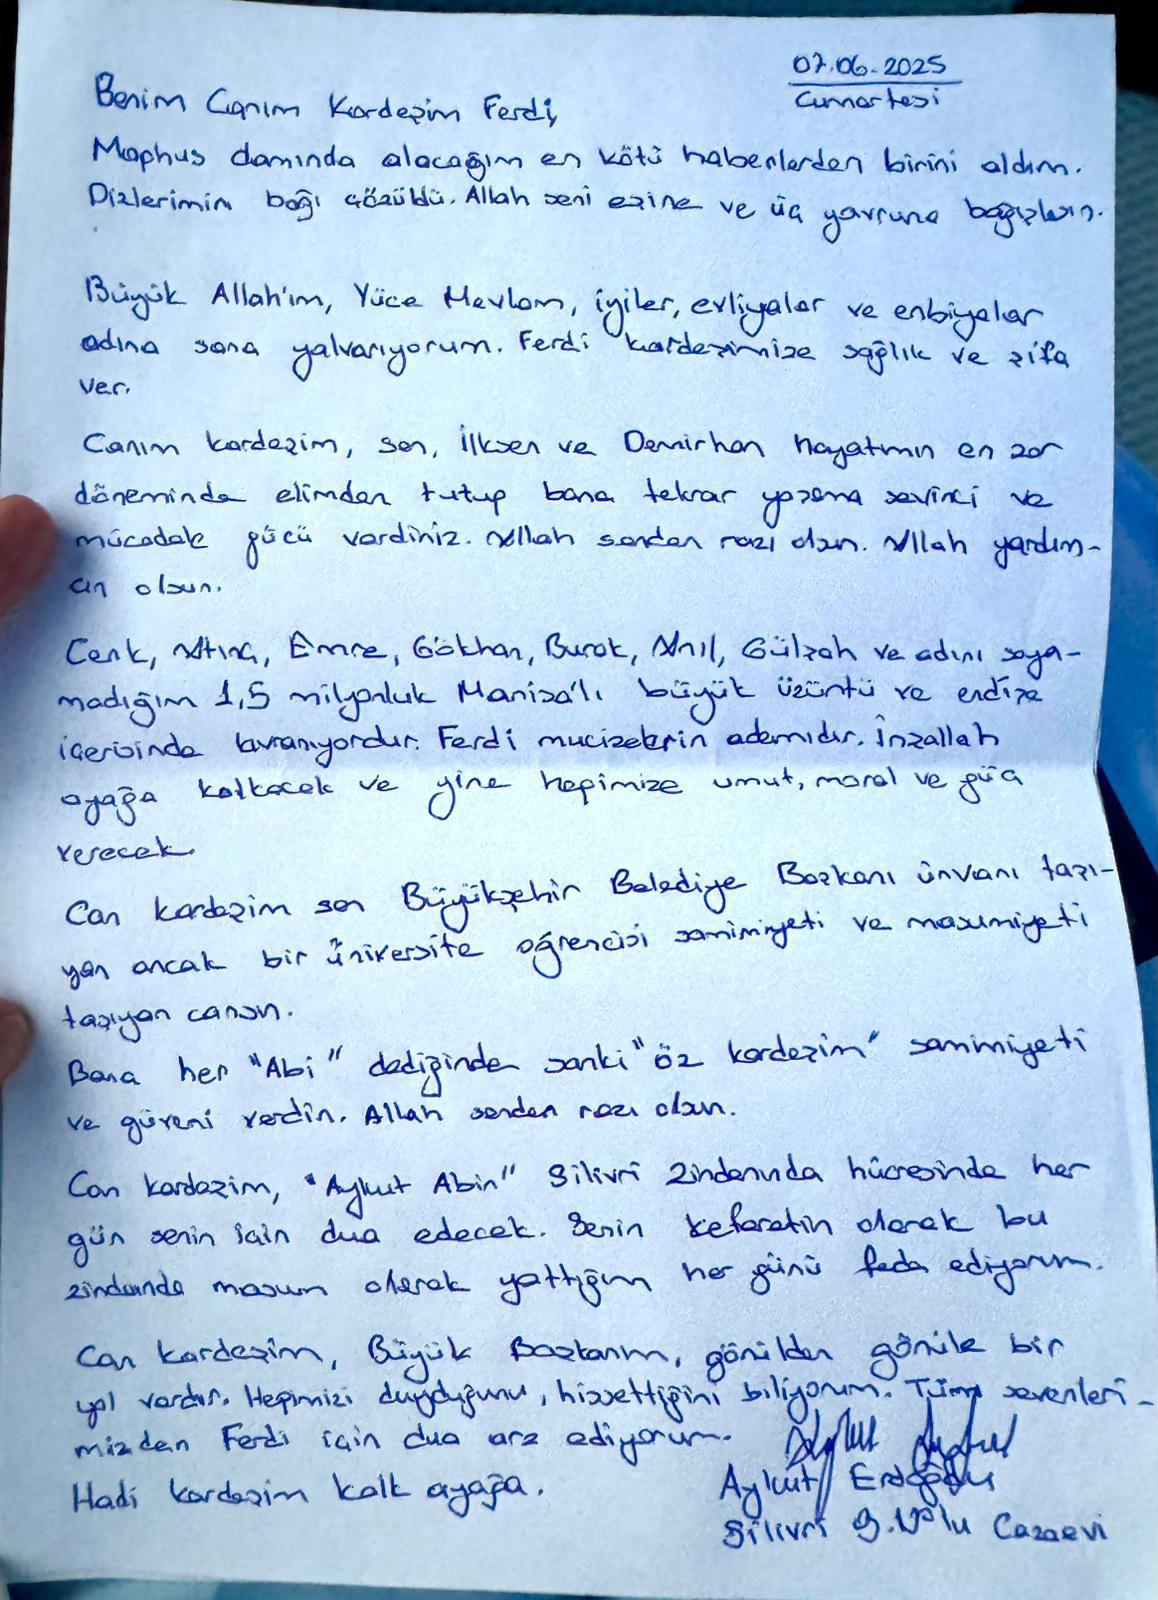 07.06.2025
Cumartesi
Benim Canım Kardeşim Ferdi,
Maphus damında alacağım en kötü haberlerden birini aldım.
Dizlerimin bağı çözüldü. Allah seni eşine ve üç yavruna bağışlasın.
Büyük Allah'ım, Yüce Mevlam, iyiler, evliyalar ve enbiyalar
adına sana yalvarıyorum. Ferdi kardeşimize sağlık ve şifa
ver.
Canım kardeşim, sen, İlksen ve Demirhan hayatımın en zor
döneminde elimden tutup bana tekrar yaşama sevinci ve
mücadele gücü verdiniz. Allah senden razı olsun. Allah yardım-
cın olsun.
Cenk, Attila, Emre, Gökhan, Burak, Anıl, Gülşah ve adını saya-
madığım 1,5 milyonluk Manisa'lı büyük üzüntü ve endişe
içerisinde kıvranıyordur. Ferdi mucizelerin adamıdır. İnşallah
ayağa kalkacak ve yine hepimize umut, moral ve güç
verecek.
Can kardeşim sen Büyükşehir Belediye Başkanı ünvanı taşı-
yan ancak bir üniversite öğrencisi samimiyeti ve masumiyeti
taşıyan cansın.
Bana her "Abi" dediğinde sanki "öz kardeşim" samimiyeti
ve güveni verdin. Allah senden razı olsun.
Can kardeşim, "Aykut Abin" Silivri zindanında hücresinde her
gün senin için dua edecek. Senin kefaretin olarak bu
zindanda masum olarak yattığım her günü feda ediyorum.
Can kardeşim, Büyük Başkanım, gönülden gönüle bir
yol vardır. Hepimizi duyduğunu, hissettiğini biliyorum. Tüm sevenleri-
mizden Ferdi için dua arz ediyorum.
Hadi kardeşim kalk ayağa.
Aykut Erdoğdu
Silivri 9. No'lu Cezaevi